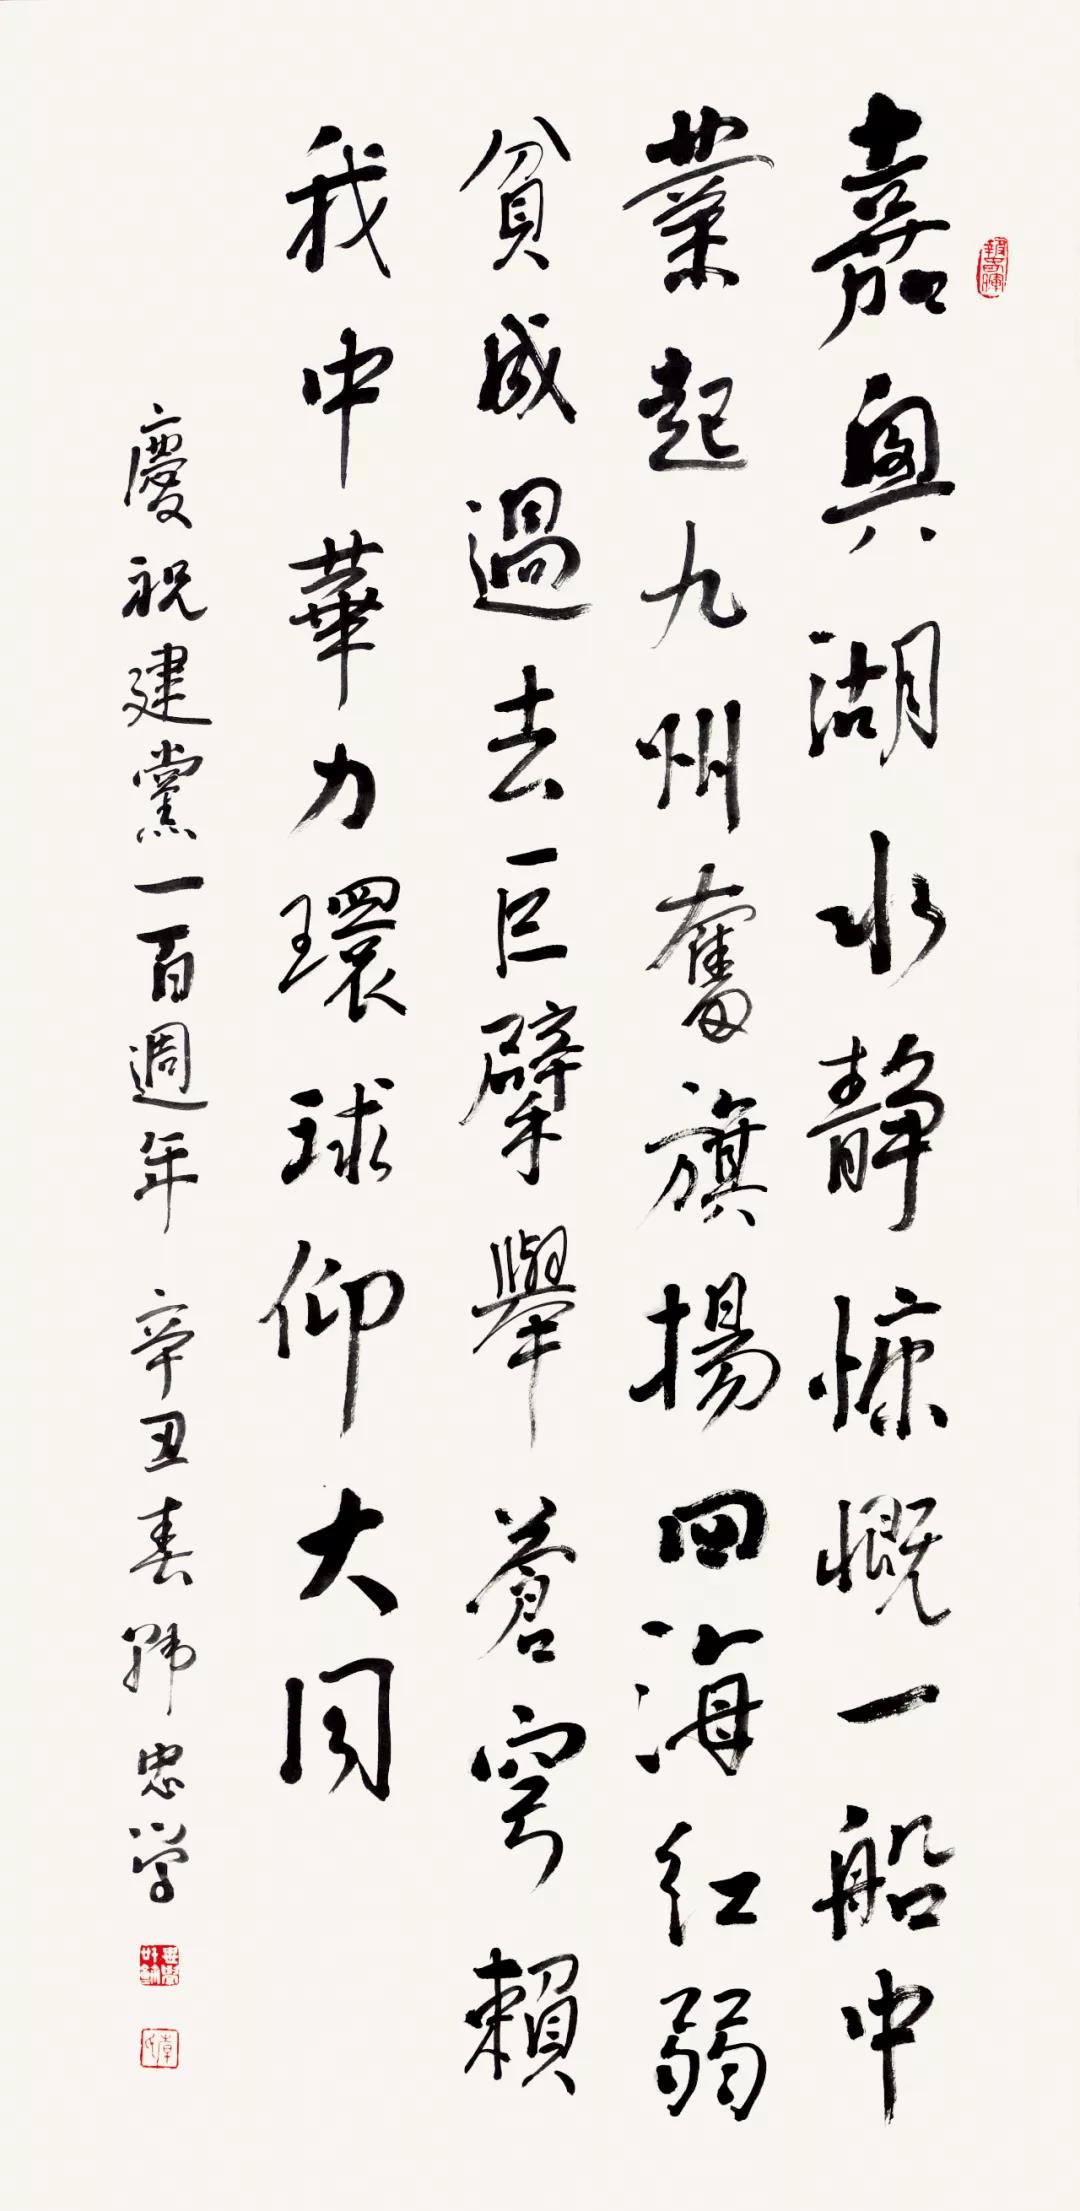 嘉興湖水靜慷慨一船中
業起九州奮旗揚四海紅弱
貧成過去巨擘舉蒼穹賴
我中華力環球仰大同
慶祝建黨一百週年 辛丑春 忠学